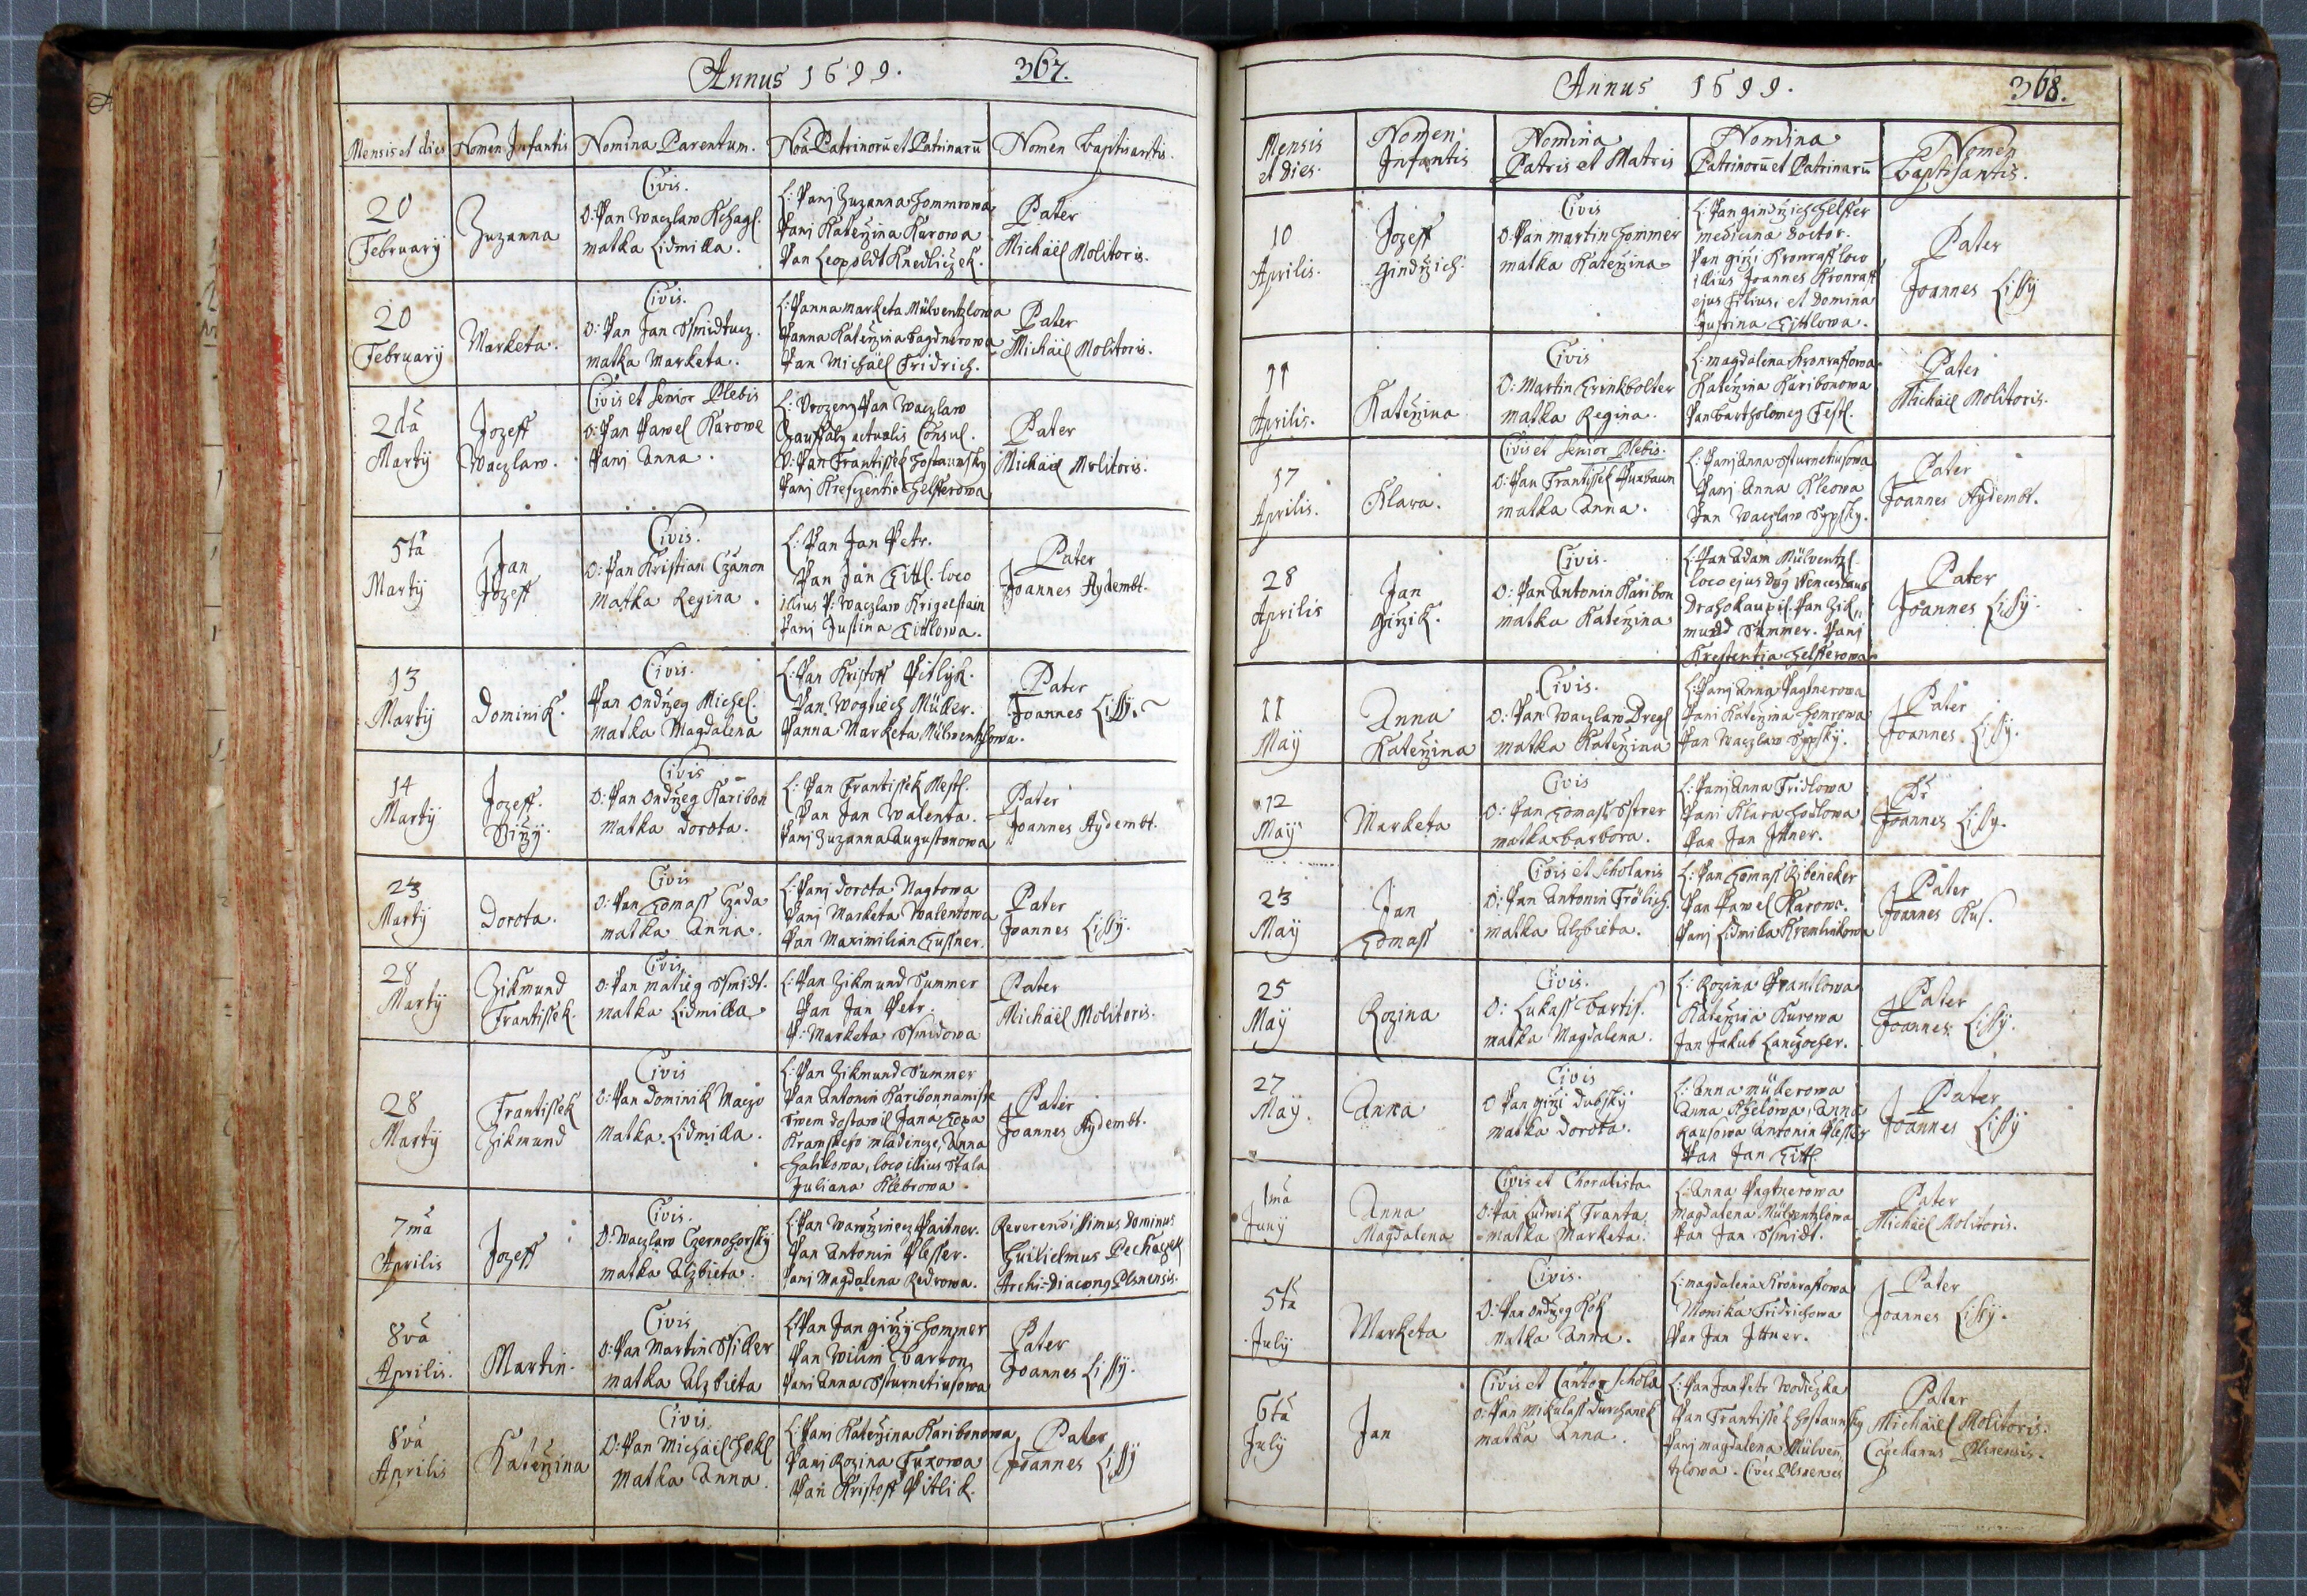 Annus 1699. 367.
Mensis et dies Nomen Infantis Nomina Parentum. Noa Patrinorū et Patrinarū Nomen baptisantis.
20
February
Zuzanna
Civis.
O: Pan Waczlaw
matka Lidmilla.
L: Panj Zuzanna Hommrowa
Panj Kateżina Kurowa
Pan Leopoldt Knedliczek.
Pater
Michäel Molitoris.
20
February
Marketa.
Civis.
O: Pan Jan
matka Marketa.
L: Panna marketa Mülventzlowa
Panna Kateżina
Pan Michäel Fridrich.
Pater
Michäel Molitoris.
2da
Martÿ
Jozeff
Waczlaw.
Civis et Senior Plebis
O: Pan Pawel Karowe
Panj Anna.
L: Urozenj Pan Waczlaw
actualis Consul.
O: Pan Frantissek Hostaunsky
Panj Helfferowa
Pater
Michäel Molitoris.
5ta
Martÿ
Jan
Jozeff
Civis.
O: Pan Kristian Czamon
Matka Regina.
L: Pan Jan Petr.
Pan Jan Tittl. loco
illius P: Waczlaw Krigelstain
Panj Justina Tittlowa.
Pater
Joannes Aydembt.
13
Martÿ
Dominik.
Civis.
Pan Ondżeg Michel.
Matka Magdalena
L: Pan Kristoff Pitlyk.
Pan Wogtiech Müller.
Panna Marketa Mülwentzlowa.
Pater
Joannes Lissÿ.
14
Martÿ
Jozeff.
Civis
O: Pan Ondżeg Karibon
Matka Dorota.
L: Pan Frantissek Nestl.
Pan Jan Walenta.
Panj Zuzanna Augustonowa
Pater
Joannes Aydembt.
23
Martÿ
Dorota.
Civis
O: Pan Tomass Czada
matka Anna.
L: Panj Dorota Nagtowa
Panj Marketa Walentowa
Pan Maximilian Tussner.
Pater
Joannes Lissÿ.
28
Martÿ
Zikmund
Frantissek.
Civis
O: Pan matieg Ssmidt.
matka Lidmilla.
L: Pan Zikmund Summer
Pan Jan Petr.
P: Marketa Ssmidowa
Pater
Michäel Molitoris.
28
Martÿ
Frantissek
Zikmund
Civis
O: Pan Dominik Maczo
Matka Lidmilla.
L: Pan Zikmund Summer
Pan Antonin Karibon namiste
swem dostawil Jana
mladencze, Anna
Halikowa, loco illius
Juliana Klebrowa.
Pater
Joannes Aydembt.
7ma
Aprilis
Jozeff
Civis.
O: Waczlaw Czernohorsky
matka Alzbieta.
L: Pan Wawżinecz Paitner.
Pan Antonin Plesser.
Panj Magdalena Redrowa.
Reverendissimus Dominus
Guilielmus Pechaczek
Archi-Diaconus Plsnensis.
8va
Aprilis.
Martin.
Civis
O: Pan Martin Ssiller
matka Alzbieta
L: Pan Jan giżÿ Hommer
Pan Wilim Barton
Panj Anna Ssturnetiusowa
Pater
Joannes Lissÿ.
8va
Aprilis
Kateżina
Civis.
O: Pan Michäel Hekl
Matka Anna.
L: Panj Kateżina Karibonowa
Panj Rozina Fuxowa
Pan Kristoff Pitlik.
Pater
Joannes Lissÿ
Annus 1699. 368.
Mensis et dies.
Nomen Infantis
Nomina Patris et Matris
Nomina Patrinorū et Patrinarū
Nomen baptisantis.
10
Aprilis.
Jozeff
Gindżich.
Civis
O: Pan martin Hommer
matka Kateżina
L: Pan gindżich Helffer
medicinæ Doctor.
Pan giżi Kronraff loco
illius Joannes Kronraff
ejus Filius, et Domina
Justina Tittlowa.
Pater
Joannes Lissÿ
11
Aprilis.
Kateżina
Civis
O: Martin Trinkbolter
Matka Regina.
L: magdalena Kronraffowa
Kateżina Karibonowa
Pan bartholomeg Festl.
Pater
Michäel Molitoris.
17
Aprilis.
Klara.
Civis et Senior Plebis.
O: Pan Frantissek Puxbaum
matka Anna.
L: Panj Anna Ssturnetiusowa
Panj Anna Kleowa
Pan Waczlaw Sypsky.
Pater
Joannes Aydembt.
28
Aprilis
Jan
Giżik.
Civis.
O: Pan Antonin Karibon
matka Kateżina
L: Pan Adam Mülventzl
loco ejus Dnus Wenceslaus
Drahokaupil. Pan Zik,,
mund Summer. Panj
Krestentia Helfferowa
Pater
Joannes Lissÿ.
11
Maÿ
Anna
Kateżina
Civis.
O: Pan Waczlaw Dregl
matka Kateżina
L: Panj Anna Pagtnerowa
Panj Kateżina Homrowa
Pan Waczlaw Sypskÿ.
Pater
Joannes Lissÿ.
12
Maÿ
Marketa
Civis
O: Pan Tomass Sstrer
matka barbora.
L: Panj Anna Fridlowa
Panj Klara Hodlowa
Pan Jan Ittner.
Pr
Joannes Lissy.
23
Maÿ
Jan
Tomass
Civis et Scholaris
O: Pan Antonin Frölich.
matka Alzbieta.
L: Pan Tomass Ribeneker
Pan Pawel Karowa.
Panj Lidmilla Kremlinkowa
Pater
Joannes Kus.
25
Maÿ
Rozina
Civis.
O: Lukass bartis.
matka Magdalena.
L: Rozina Frantlowa
Kateżina Kurowa
Jan Jakub Lanczocher.
Pater
Joannes Lissÿ.
27
Maÿ.
Anna
Civis
O Pan giżi Dubskÿ
matka Dorota.
L: Anna müllerowa
Anna Anna
Kausowa Antonin Plesser
Pan Jan Tittl
Pater
Joannes Lissÿ
1ma
Junÿ
Anna
Magdalena
Civis et Choralista
O: Pan Ludwik Franta
matka Marketa.
L: Anna Pagtnerowa
magdalena Mülventzlowa
Pan Jan Ssmidt.
Pater
Michäel Molitoris.
5ta
Julÿ
Marketa
Civis.
O: Pan Ondżeg Kok
Matka Anna.
L: magdalena Kronraffowa
Monika Fridrichowa
Pan Jan Ittner.
Pater
Joannes Lissÿ.
6ta
Julÿ
Jan
Civis et Cantor Schola
O: Pan Mikulass Durchanek
matka Anna.
L: Pan Jan Petr Wodiczka
Pan Frantissek Hostaunsky
Panj magdalena Mülven,,
tzlowa. Cives Plsnenses
Pater
Michäel Molitoris.
Capellanus Plsnensis.